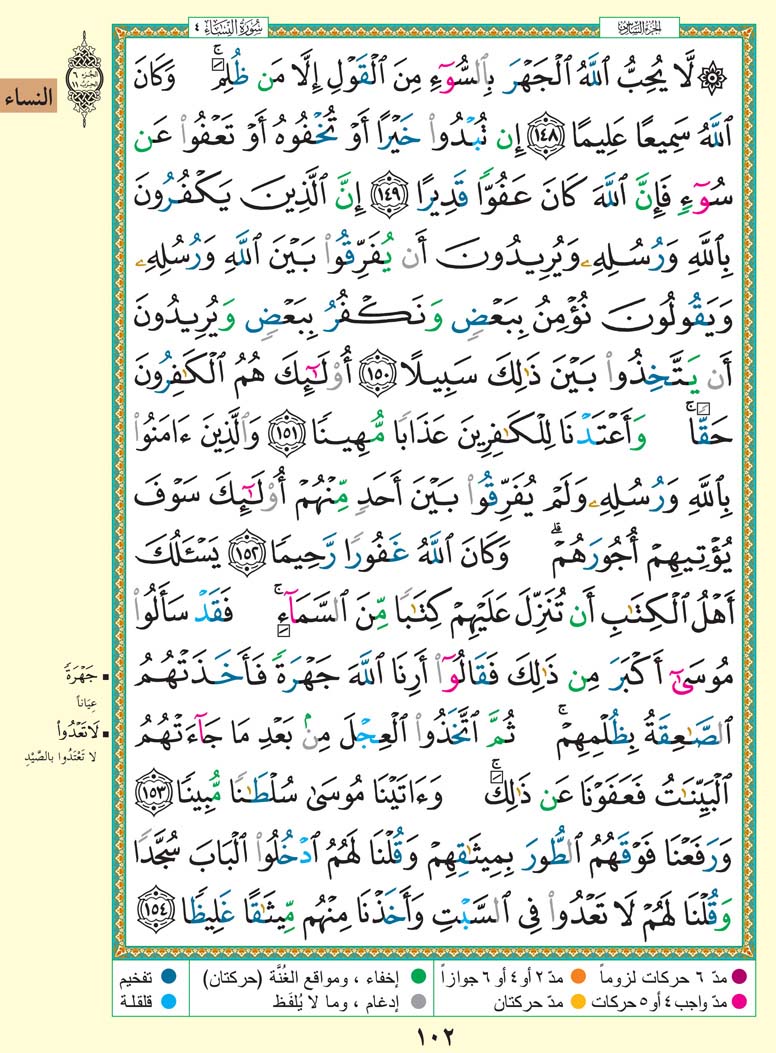 سُورَةُ النِّسَاء ٤
الجزء السادس
الجزء ٦
الحزب ١١
النساء
۞ لَّا يُحِبُّ ٱللَّهُ ٱلْجَهْرَ بِٱلسُّوٓءِ مِنَ ٱلْقَوْلِ إِلَّا مَن ظُلِمَ ۚ وَكَانَ
ٱللَّهُ سَمِيعًا عَلِيمًا ١٤٨ إِن تُبْدُوا۟ خَيْرًا أَوْ تُخْفُوهُ أَوْ تَعْفُوا۟ عَن
سُوٓءٍ فَإِنَّ ٱللَّهَ كَانَ عَفُوًّا قَدِيرًا ١٤٩ إِنَّ ٱلَّذِينَ يَكْفُرُونَ
بِٱللَّهِ وَرُسُلِهِۦ وَيُرِيدُونَ أَن يُفَرِّقُوا۟ بَيْنَ ٱللَّهِ وَرُسُلِهِۦ
وَيَقُولُونَ نُؤْمِنُ بِبَعْضٍ وَنَكْفُرُ بِبَعْضٍ وَيُرِيدُونَ
أَن يَتَّخِذُوا۟ بَيْنَ ذَٰلِكَ سَبِيلًا ١٥٠ أُو۟لَٰٓئِكَ هُمُ ٱلْكَٰفِرُونَ
حَقًّا ۚ وَأَعْتَدْنَا لِلْكَٰفِرِينَ عَذَابًا مُّهِينًا ١٥١ وَٱلَّذِينَ ءَامَنُوا۟
بِٱللَّهِ وَرُسُلِهِۦ وَلَمْ يُفَرِّقُوا۟ بَيْنَ أَحَدٍ مِّنْهُمْ أُو۟لَٰٓئِكَ سَوْفَ
يُؤْتِيهِمْ أُجُورَهُمْ ۗ وَكَانَ ٱللَّهُ غَفُورًا رَّحِيمًا ١٥٢ يَسْـَٔلُكَ
أَهْلُ ٱلْكِتَٰبِ أَن تُنَزِّلَ عَلَيْهِمْ كِتَٰبًا مِّنَ ٱلسَّمَآءِ ۚ فَقَدْ سَأَلُوا۟
مُوسَىٰٓ أَكْبَرَ مِن ذَٰلِكَ فَقَالُوٓا۟ أَرِنَا ٱللَّهَ جَهْرَةً فَأَخَذَتْهُمُ
ٱلصَّٰعِقَةُ بِظُلْمِهِمْ ۚ ثُمَّ ٱتَّخَذُوا۟ ٱلْعِجْلَ مِنۢ بَعْدِ مَا جَآءَتْهُمُ
ٱلْبَيِّنَٰتُ فَعَفَوْنَا عَن ذَٰلِكَ ۚ وَءَاتَيْنَا مُوسَىٰ سُلْطَٰنًا مُّبِينًا ١٥٣
وَرَفَعْنَا فَوْقَهُمُ ٱلطُّورَ بِمِيثَٰقِهِمْ وَقُلْنَا لَهُمُ ٱدْخُلُوا۟ ٱلْبَابَ سُجَّدًا
وَقُلْنَا لَهُمْ لَا تَعْدُوا۟ فِى ٱلسَّبْتِ وَأَخَذْنَا مِنْهُم مِّيثَٰقًا غَلِيظًا ١٥٤
جَهْرَةً
عِيَاناً
لَا تَعْدُوا۟
لا تَعْتَدُوا بالصَّيْدِ
مدّ ٦ حركات لزوماً
مدّ ٢ أو ٤ أو ٦ جوازاً
مدّ واجب ٤ أو ٥ حركات
مدّ حركتان
إخفاء ، ومواقع الغُنَّة (حركتان)
إدغام ، وما لا يُلفَظ
تفخيم
قلقلة
١٠٢